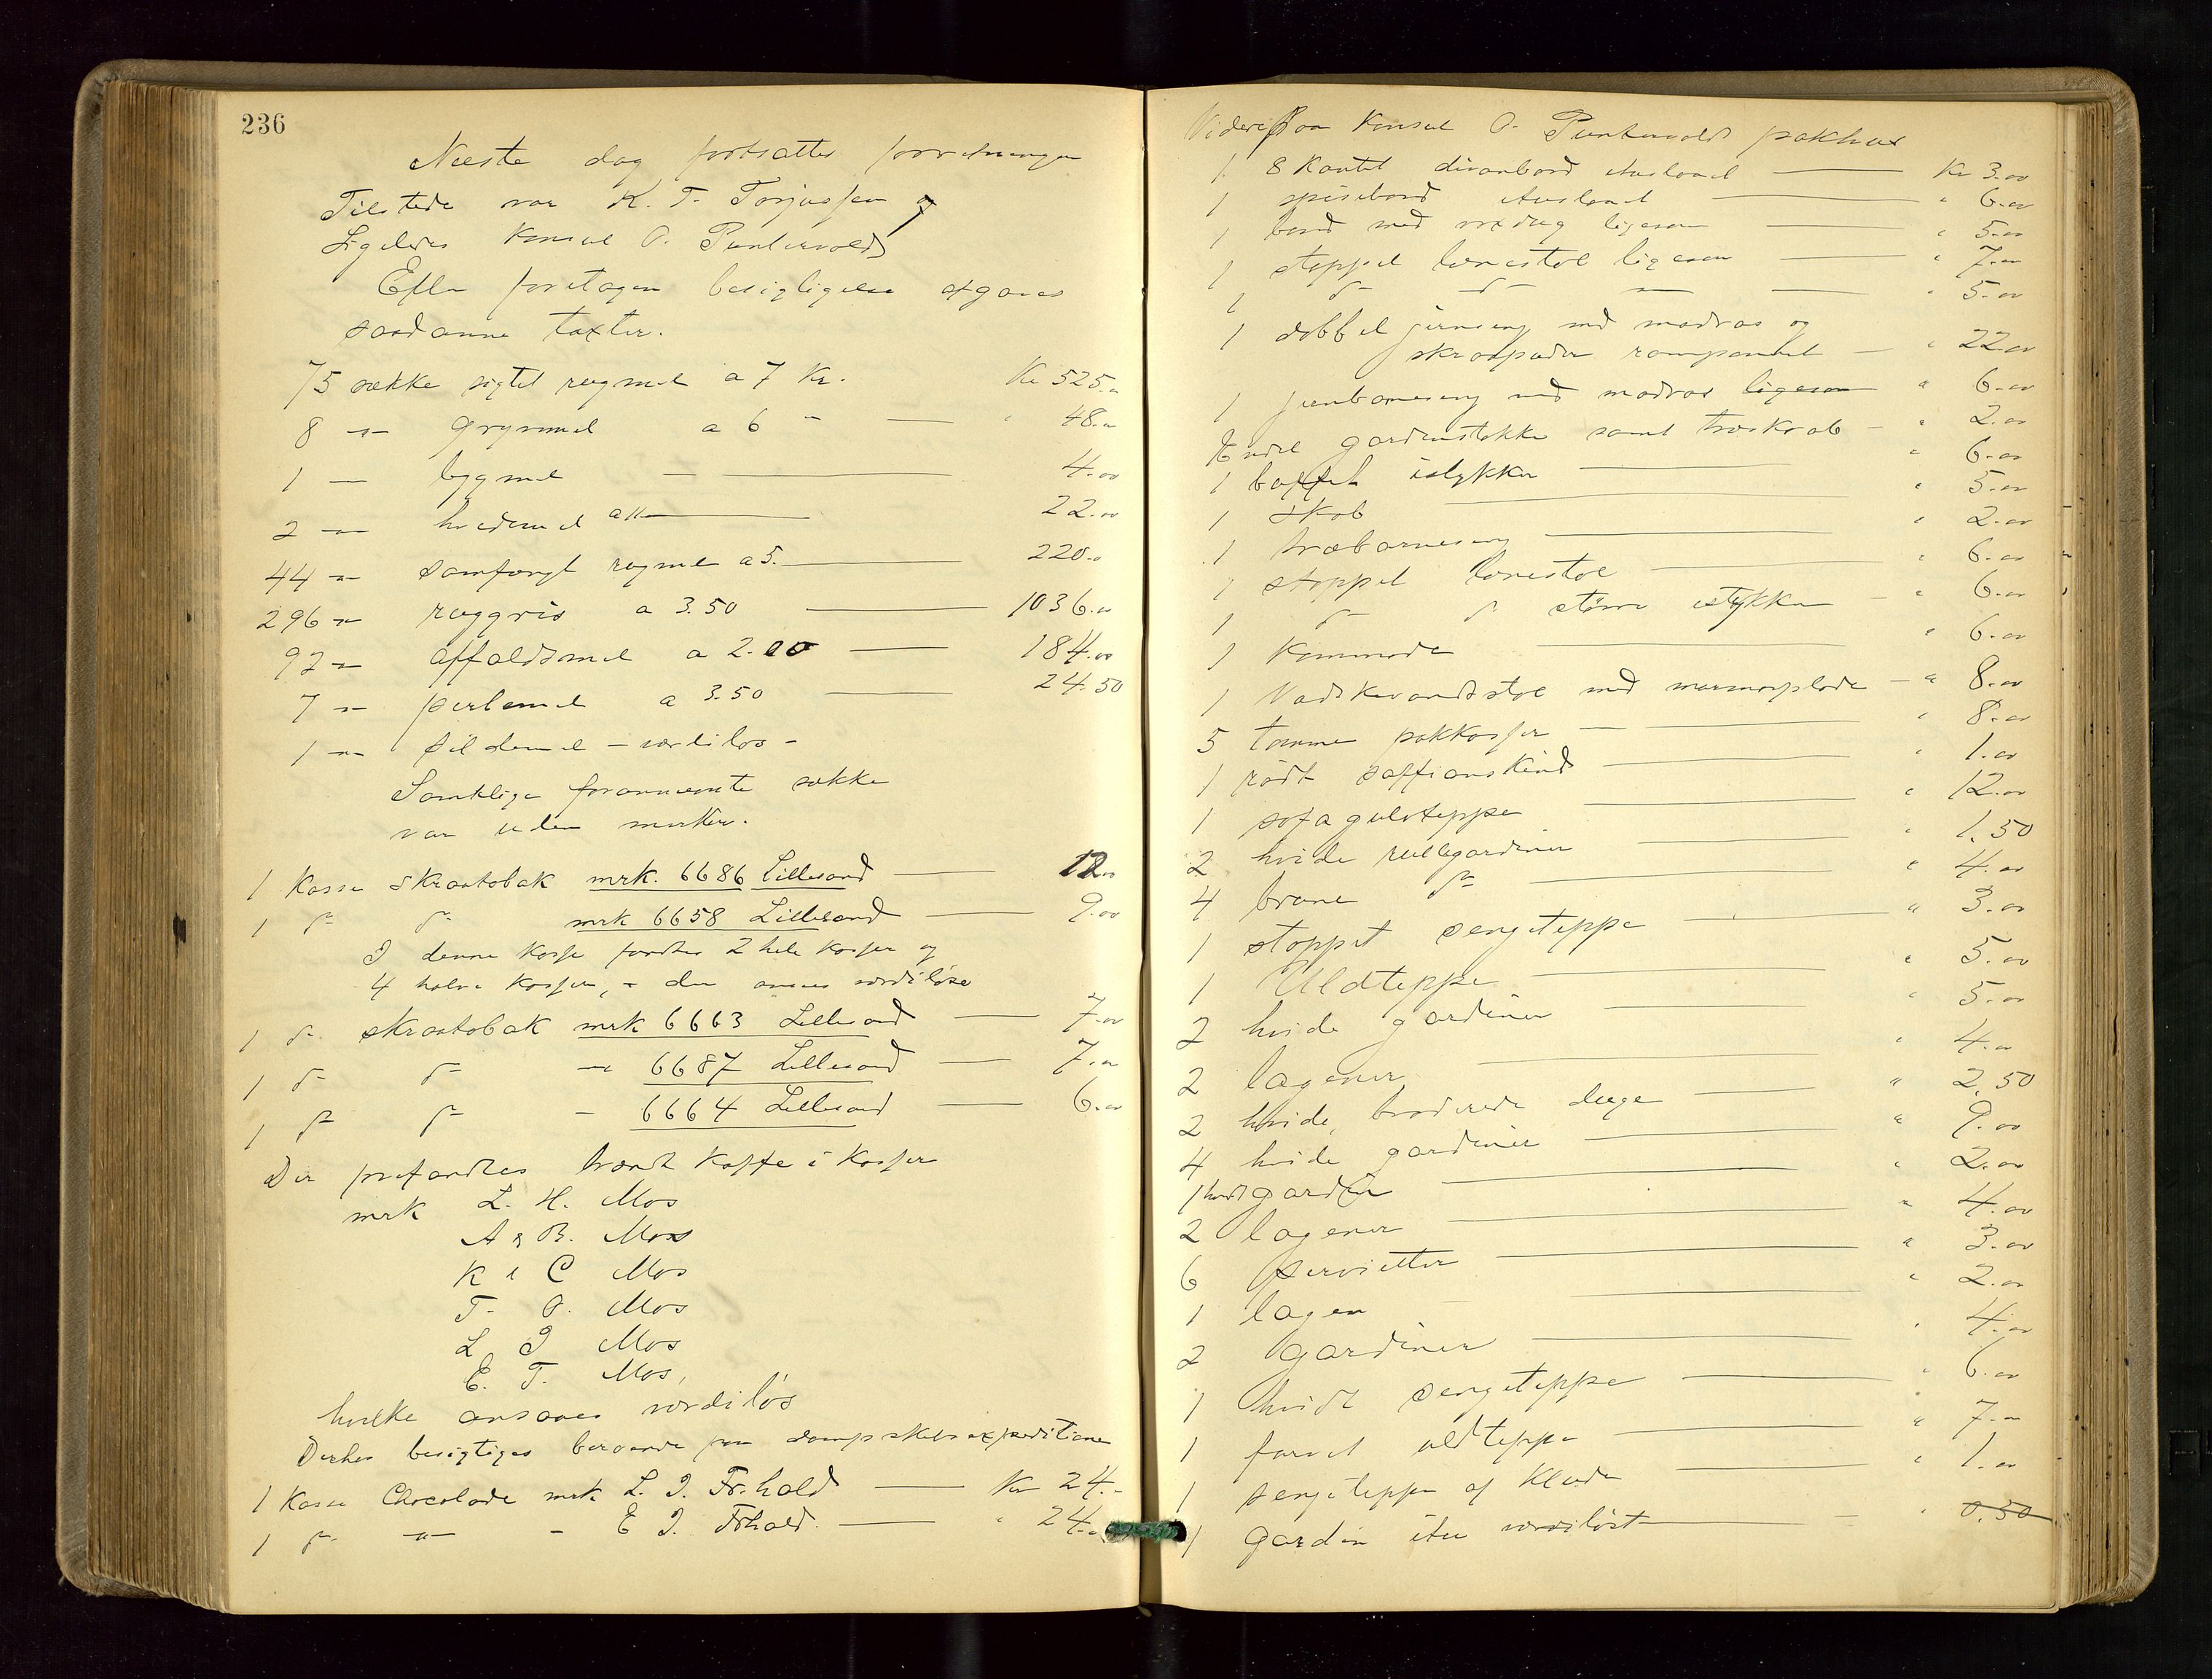 236
Næste dag fortsattes forretningen
Tilstede var K. T. Torjussen og
Ligeledes Konsul O. Puntervolds
Efter foretagen besigtigelse afgaves
saadanne taxter.
75 sække sigtet rugmel a 7 Kr. Kr 525.-
8 -"- grynmel a 6 - 48.-
1 - bygmel - 4.00
2 -"- hvedemel a 11 22.00
44 -"- samfængt rugmel a 5. 220.-
296 -"- ruggris a 3.50 1036.00
92 -"- affaldsmel a 2.00 184.00
7 -"- perlemel a 3.50 24.50
1 -"- sildemel - værdiløs -
Samtlige forannævnte sække
var uden mærker.
1 Kasse Skraatobak mrk. 6686 Lillesand 12.00
1 do do mrk 6658 Lillesand 9.00
I denne Kasse fandtes 2 hele Kasser og
4 halve Kasser, - der ansees værdiløse
1 do skraatobak mrk 6663 Lillesand 7.00
1 do do -"- 6687 Lillesand 7.00
1 do do - 6664 Lillesand 6.00
Der forefandtes brændt Kaffe i Kasser
mrk L. H. Mos
A & B. Mos
K & C Mos
T. O. Mos
L J Mos
E. T. Mos,
hvilke ansaaes værdiløs
Derhos besigtiges beroende paa dampskibsexpeditionen
1 Kasse Chocolade mrk L. J. Fr.hald Kr 24.-
1 do -"- - E J. Frhald. " 24.-
Videre paa Konsul O. Puntervolds pakhus
1 8 Kantet divanbord Kr 3.00
1 spisebord " 6.00
1 bord med voxdug ligesaa " 5.00
1 stoppet lænestol ligesaa " 7.00
1 do do - " 5.00
1 dobbel jernseng med madras og
skraapuder ramponeret " 22.00
1 jernbarneseng med madras ligesaa " 6.00
Endel gardinstokke samt træskrab " 2.00
1 buffet istykker " 6.00
1 skab " 5.00
1 træbarneseng " 2.00
1 stoppet lænestol " 6.00
1 do do større istykker " 6.00
1 Kommode " 6.00
1 Vadskevandsstol med marmorplade " 8.00
5 tomme pakkasser " 8.00
1 rødt saffianskind " 1.00
1 sofa gulvteppe " 12.00
2 hvide rullegardiner " 1.50
4 brune do " 4.00
1 stoppet sengeteppe " 3.00
1 Uldteppe " 5.00
2 hvide gardiner " 5.00
2 lagener " 4.00
2 hvide, broderede duge " 2.50
4 hvide gardiner " 9.00
1 hvidt gardin " 2.00
2 lagener " 4.00
6 servietter " 3.00
1 lagen " 2.00
2 gardiner " 4.00
1 hvidt sengeteppe " 6.00
1 farvet uldteppe " 7.00
1 sengeteppe af Klude " 1.00
1 gardin itu værdiløst " 0.50